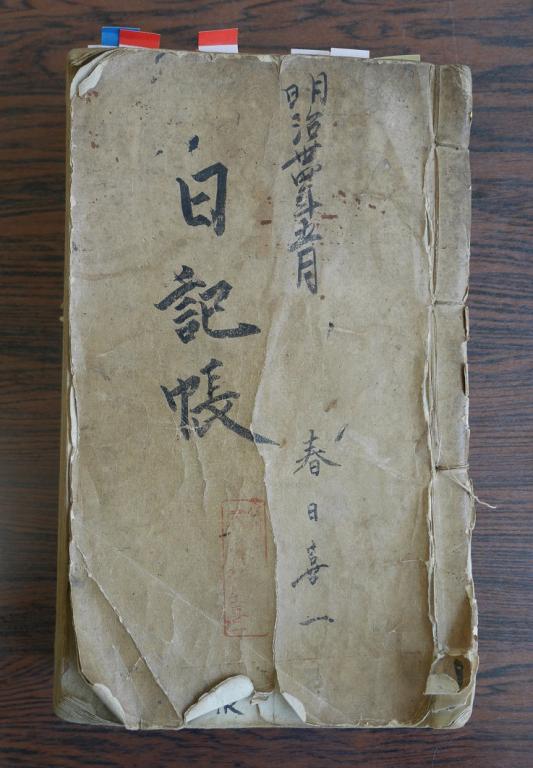 明治卅四年五月
日記帳
春日喜一